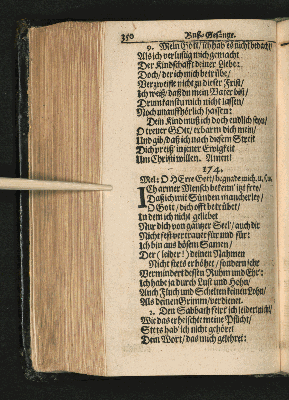 350 Buß-Gesänge.
9. Mein Gott / ich hab es nicht bedacht /
Als ich verlustig mich gemacht
Der Kindschafft deiner Liebe:
Doch / der ich mich betrübe /
Verzweifle nicht zu dieser Frist /
Ich weiß / daß du mein Vater bist /
Drum kanstu mich nicht lassen /
Noch unauffhörlich hassen:
Dein Kind muß ich doch endlich seyn /
O treuer GOtt / erbarm dich mein /
Und gib / daß ich nach diesem Streit
Dich preiß' in jener Ewigkeit
Um Christi willen. Amen!
174.
Mel: O HErre Gott / begnade mich / u. s. w.
ICh armer Mensch bekenn' itzt frey /
Daß ich mit Sünden mancherley /
O Gott / dich offt betrübet /
In dem ich nicht geliebt
Nur dich von gantzer Seel / auch dir
Nicht fest vertrauet für und für:
Ich bin aus bösem Samen /
Der (leider!) deinen Nahmen
Nicht stets erhöht / sondern sehr
Vermindert dessen Ruhm und Ehr:
Ich habe ja durch Lust und Hohn /
Auch Fluch und Schelten seinen Lohn /
Als deinen Grimm / verdienet.
2. Den Sabbath feirt' ich leider nicht /
Wie das erheischte meine Pflicht /
Stets hab' ich nicht gehöret
Dein Wort / das mich gelehret: